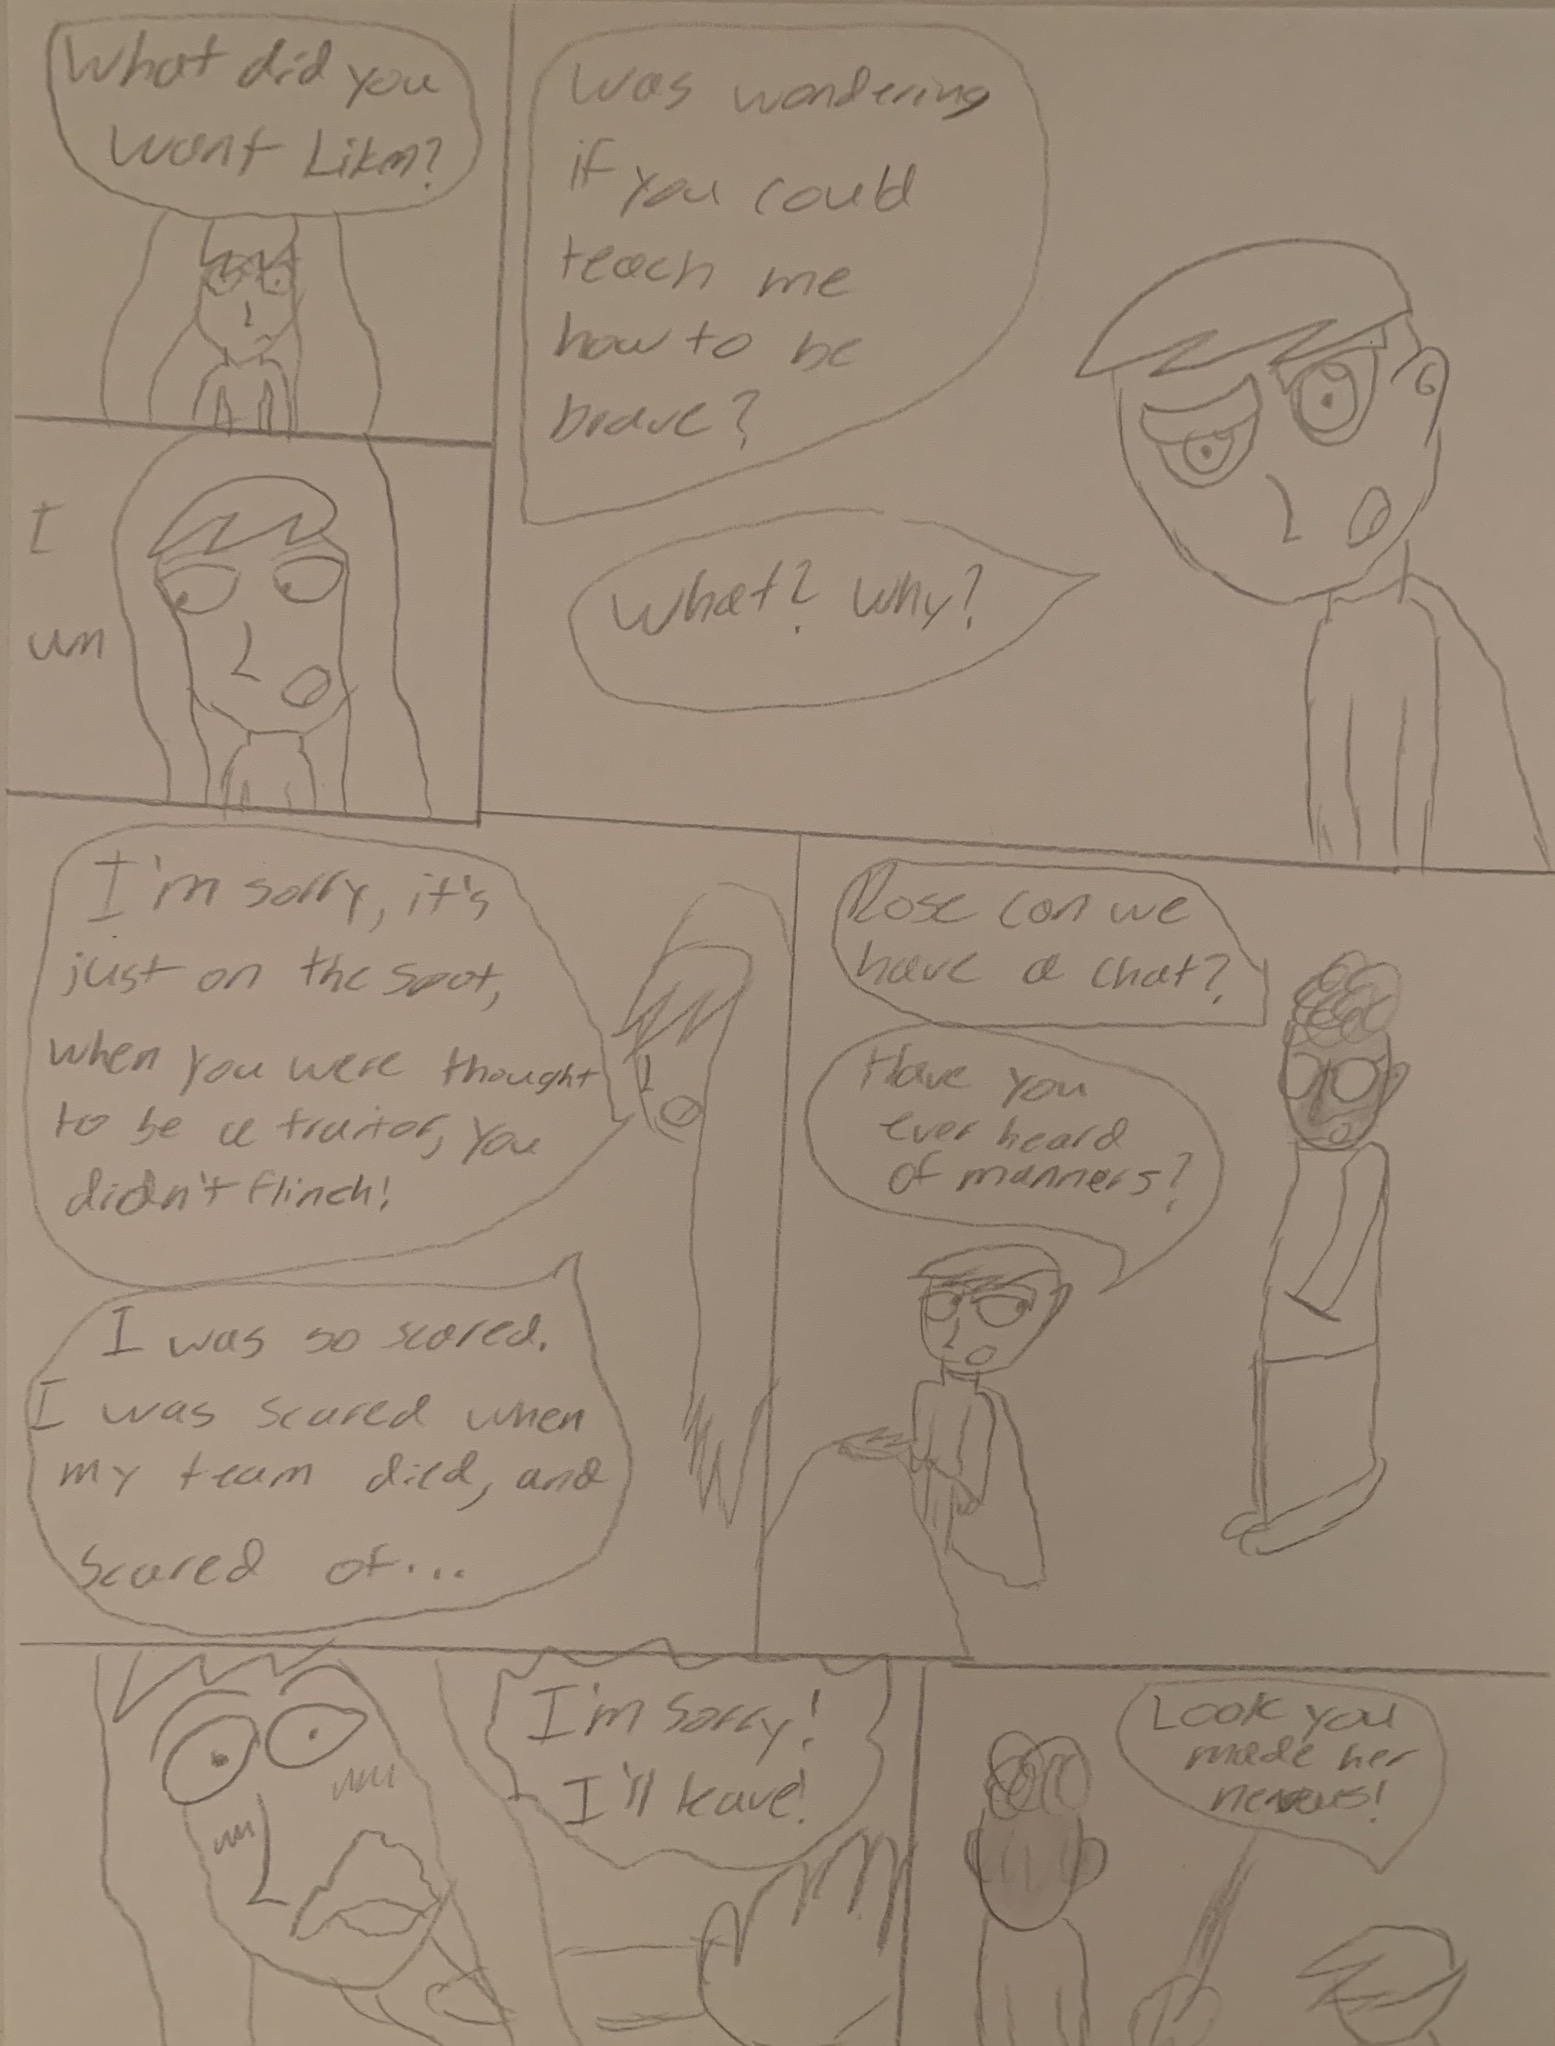 What did you
want Likm?
I
um
Was wondering
if you could
teach me
how to be
brave?
What? Why?
I'm sorry, it's
just on the spot,
when you were thought
to be a traitor, you
didn't flinch!
I was so scared.
I was scared when
my team died, and
scared of...
Rose can we
have a chat?
Have you
ever heard
of manners?
I'm sorry!
I'll leave!
Look you
made her
nervous!